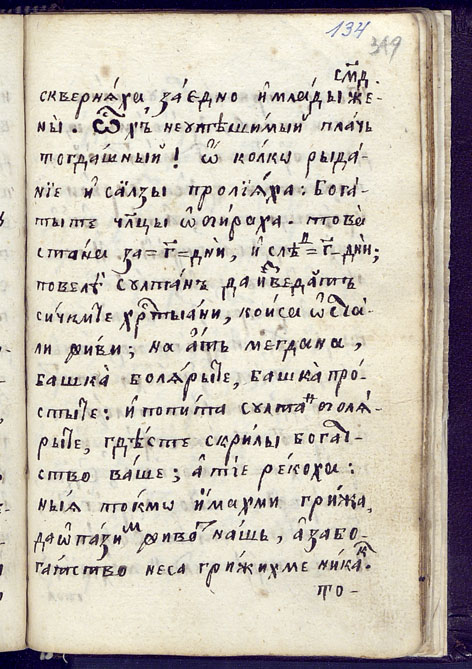 134
349
см҃д.
сквернѧха, за є҆дно и҆ млады же-
ны. Ѽхъ неутѣшимый плачь
тогдашный! ѽ колку рыда-
нїе и҆ салзы пролїѧха: Бога-
тыте чл҃цы ѡ҆бираха. това
стана за = г҃ = дни, и҆ слѣд = г҃ = дни;
повелѣ Султанъ да и҆зведатъ
сичкыте хрⷭ҇тыани, кои са ѡ҆ста-
ли живи; на атъ мегдана,
башка болѧрыте, башка про-
стыте: и҆ попыта султанъ болѧ-
рыте, гдѣ сте скрилы богат-
ство ваше; а҆ тїе рекоха:
ныѧ токмо и҆махми грижа,
да ѡ҆пазим живот нашь, а҆ за бо-
гатство не са грижихме никак.
то-